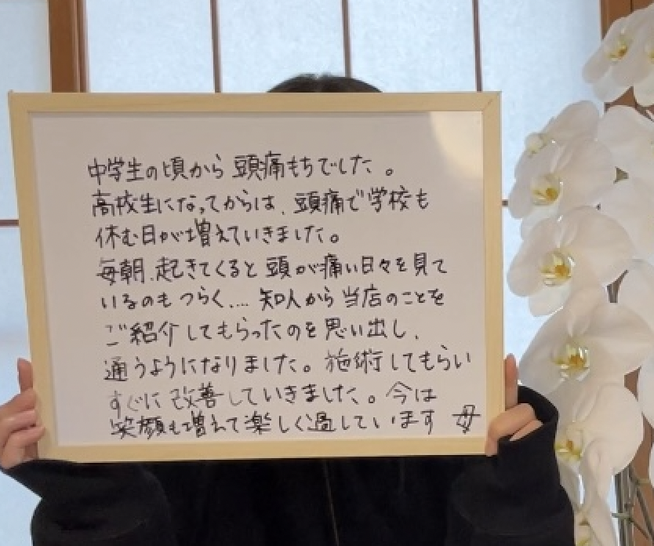 中学生の頃から頭痛もちでした。
高校生になってからは、頭痛で学校も
休む日が増えていきました。
毎朝、起きてくると頭が痛い日々を見て
いるのもつらく、... 知人から当店のことを
ご紹介してもらったのを思い出し、
通うようになりました。施術してもらい
すぐに改善していきました。今は
笑顔も増えて楽しく過しています 母